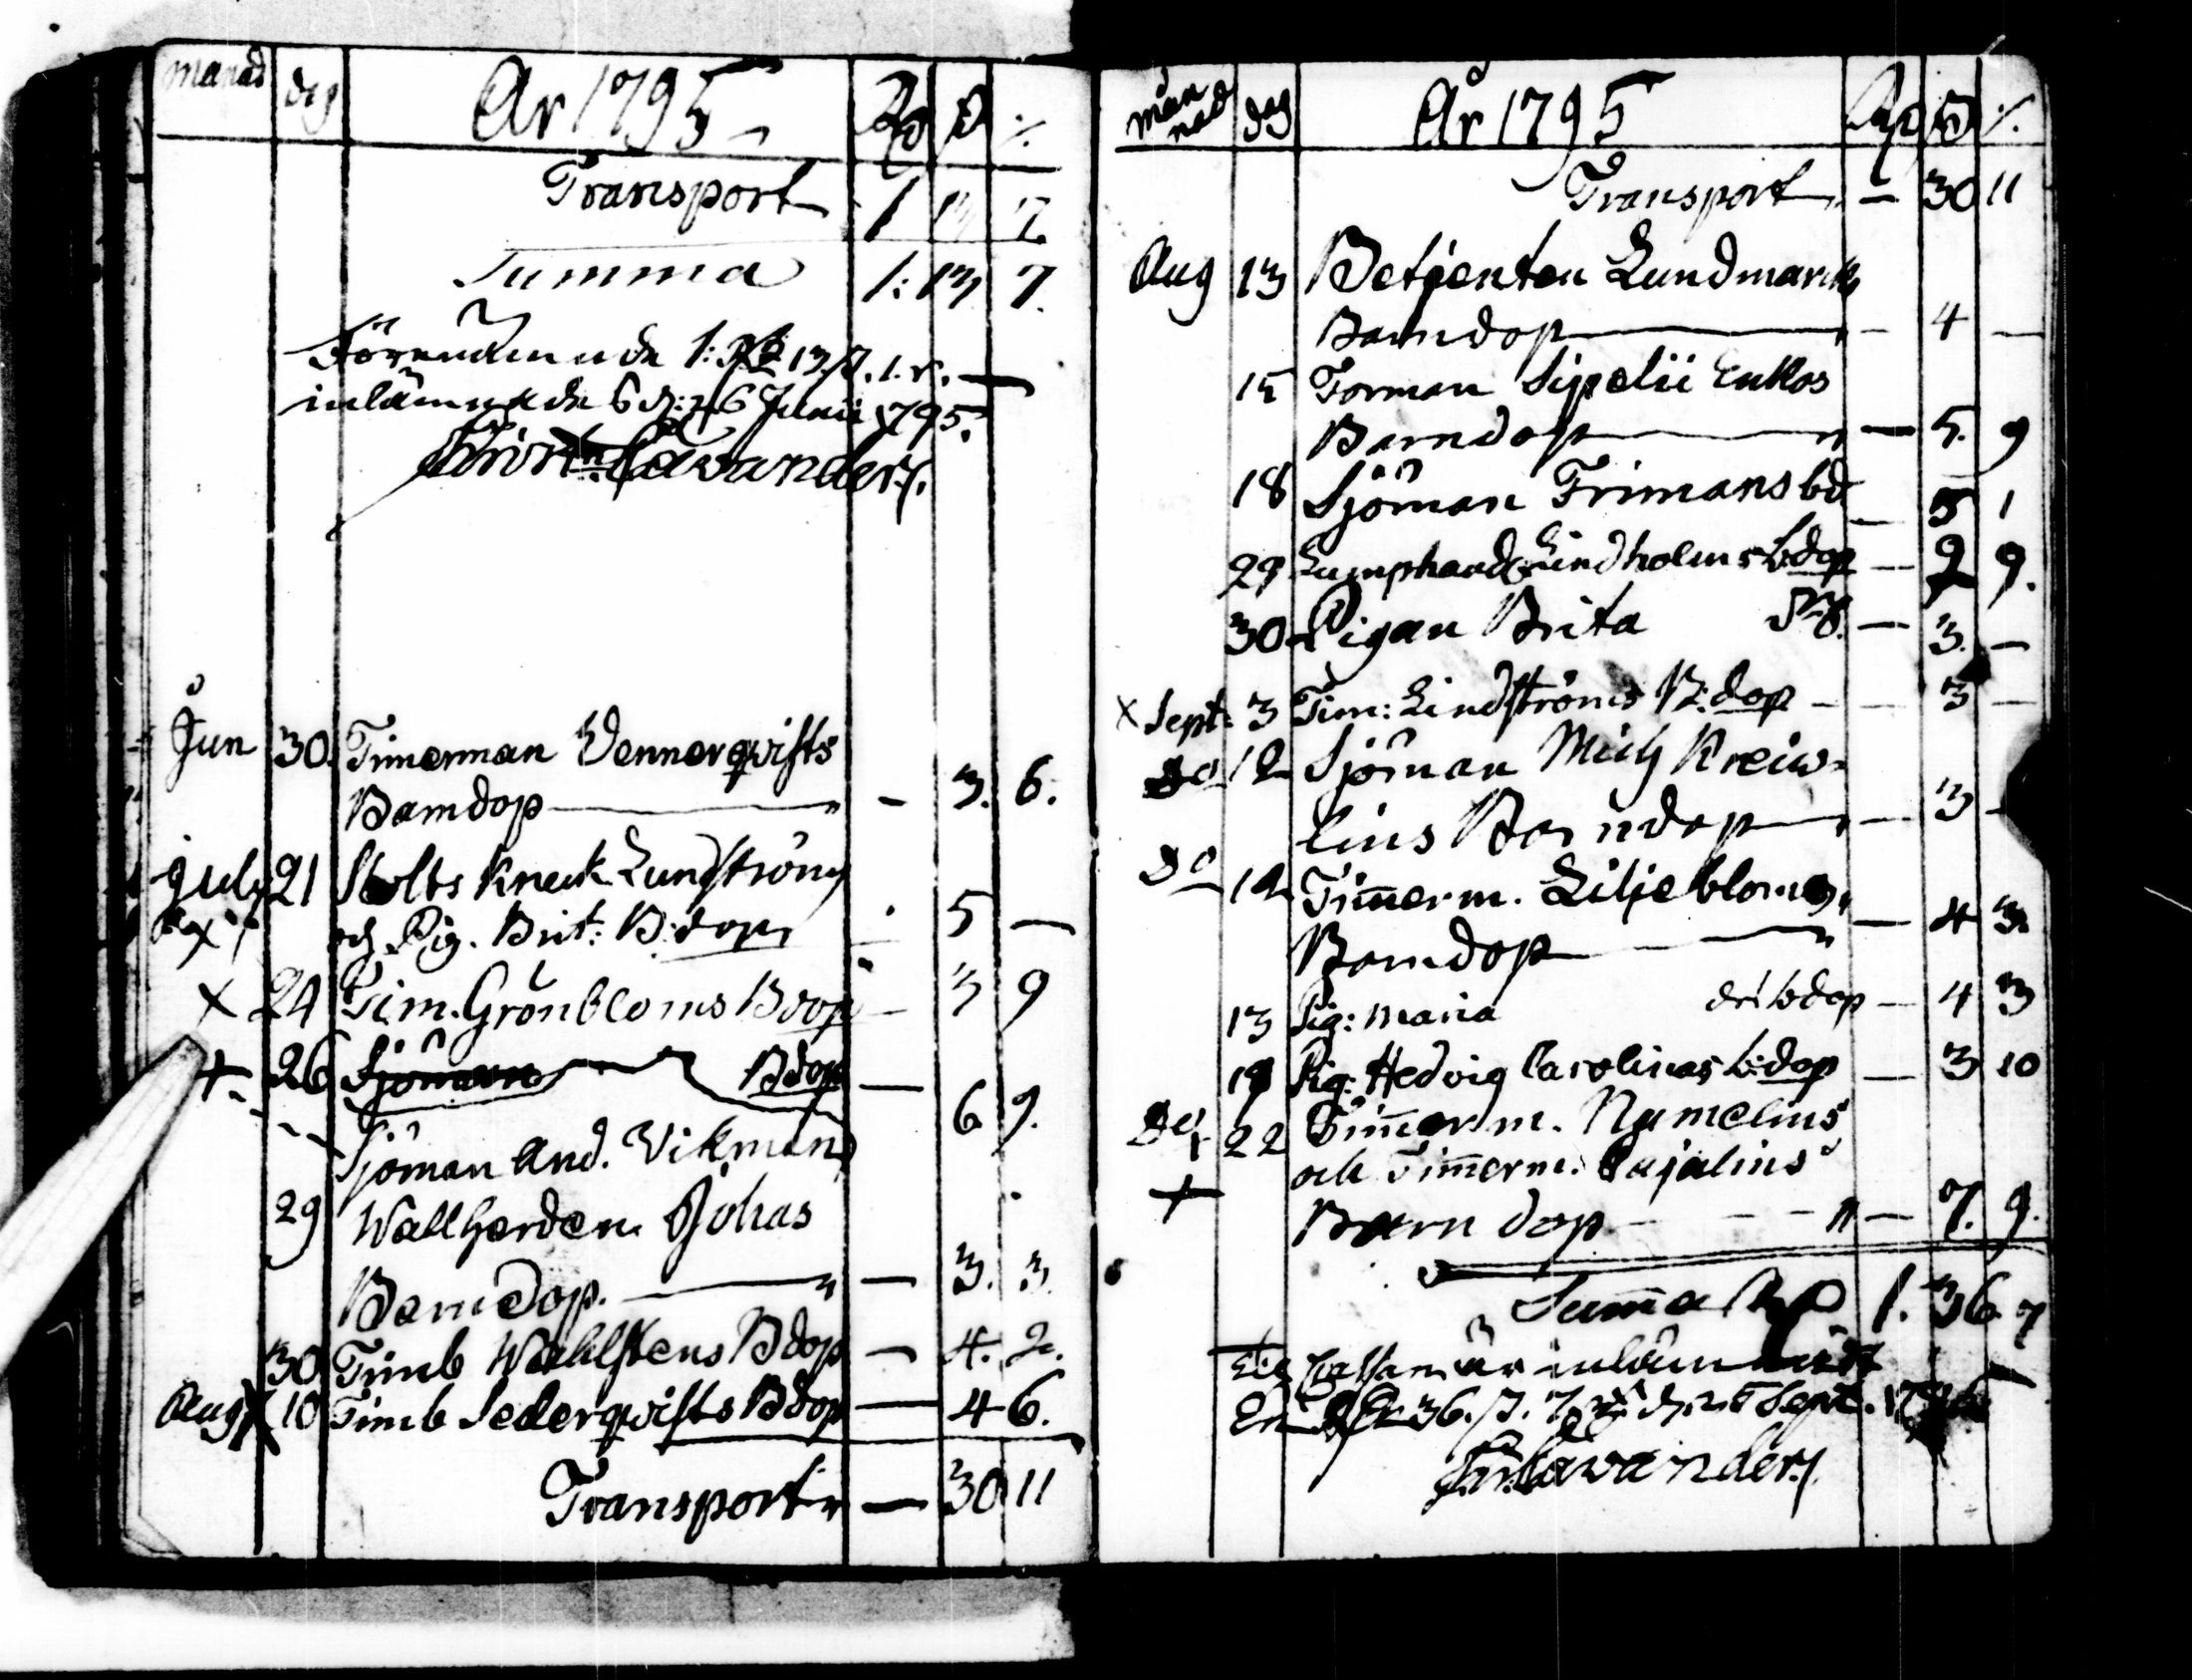 månad dag År 1795 Rd ß
Transport 1 13 7
Summa 1: 13 7.
inlämnade 6 Junii 1795.
Lavander
Jun 30. Timerman Vennerqvists
Barndop — 3. 6.
July 21 Stolts Kneck Lundströms
och Pig. Brit: B:dop, 5 —
x 24 Tim. Grönbloms Bdop — 3 9
+ 26 Sjöman Bdop —
6 9.
Sjöman And. Vikmans
29 Wallherden Johas
Barndop. — 3. 3.
30 Timb Wahlstens Bdop — 4. 2.
Aug x 10 Timb Sederqvists Bdop — 4 6.
Transport — 30 11
månad dag År 1795
Transport — 30 11
Aug 13 Betjenten Lundmarks
Barndop — 4 —
15 Forman Sipelii Enkos
Barndop — 5. 9
18 Sjöman Frimans bd — 5 1
29 Lindholms b:dop — 2 9.
30 Pigan Brita — 3. —
x Sept: 3 Tim: Lindströms B:dop — 3 —
Do 12 Sjöman Mich Kreiw-
lius Barndop — 3 -
Do 12 Timmerm. Liljebloms
Barndop — 4 3.
13 Pig: Maria bdop — 4 3
19 Pig: Hedvig Carolinas b:dop — 3 10
22 Timmerm. Numelius
och Timmerm. Cajalius
+ Barndop — 7. 9.
Summa 1. 36 7
är
36. ß. 7 Sept.
Lavander